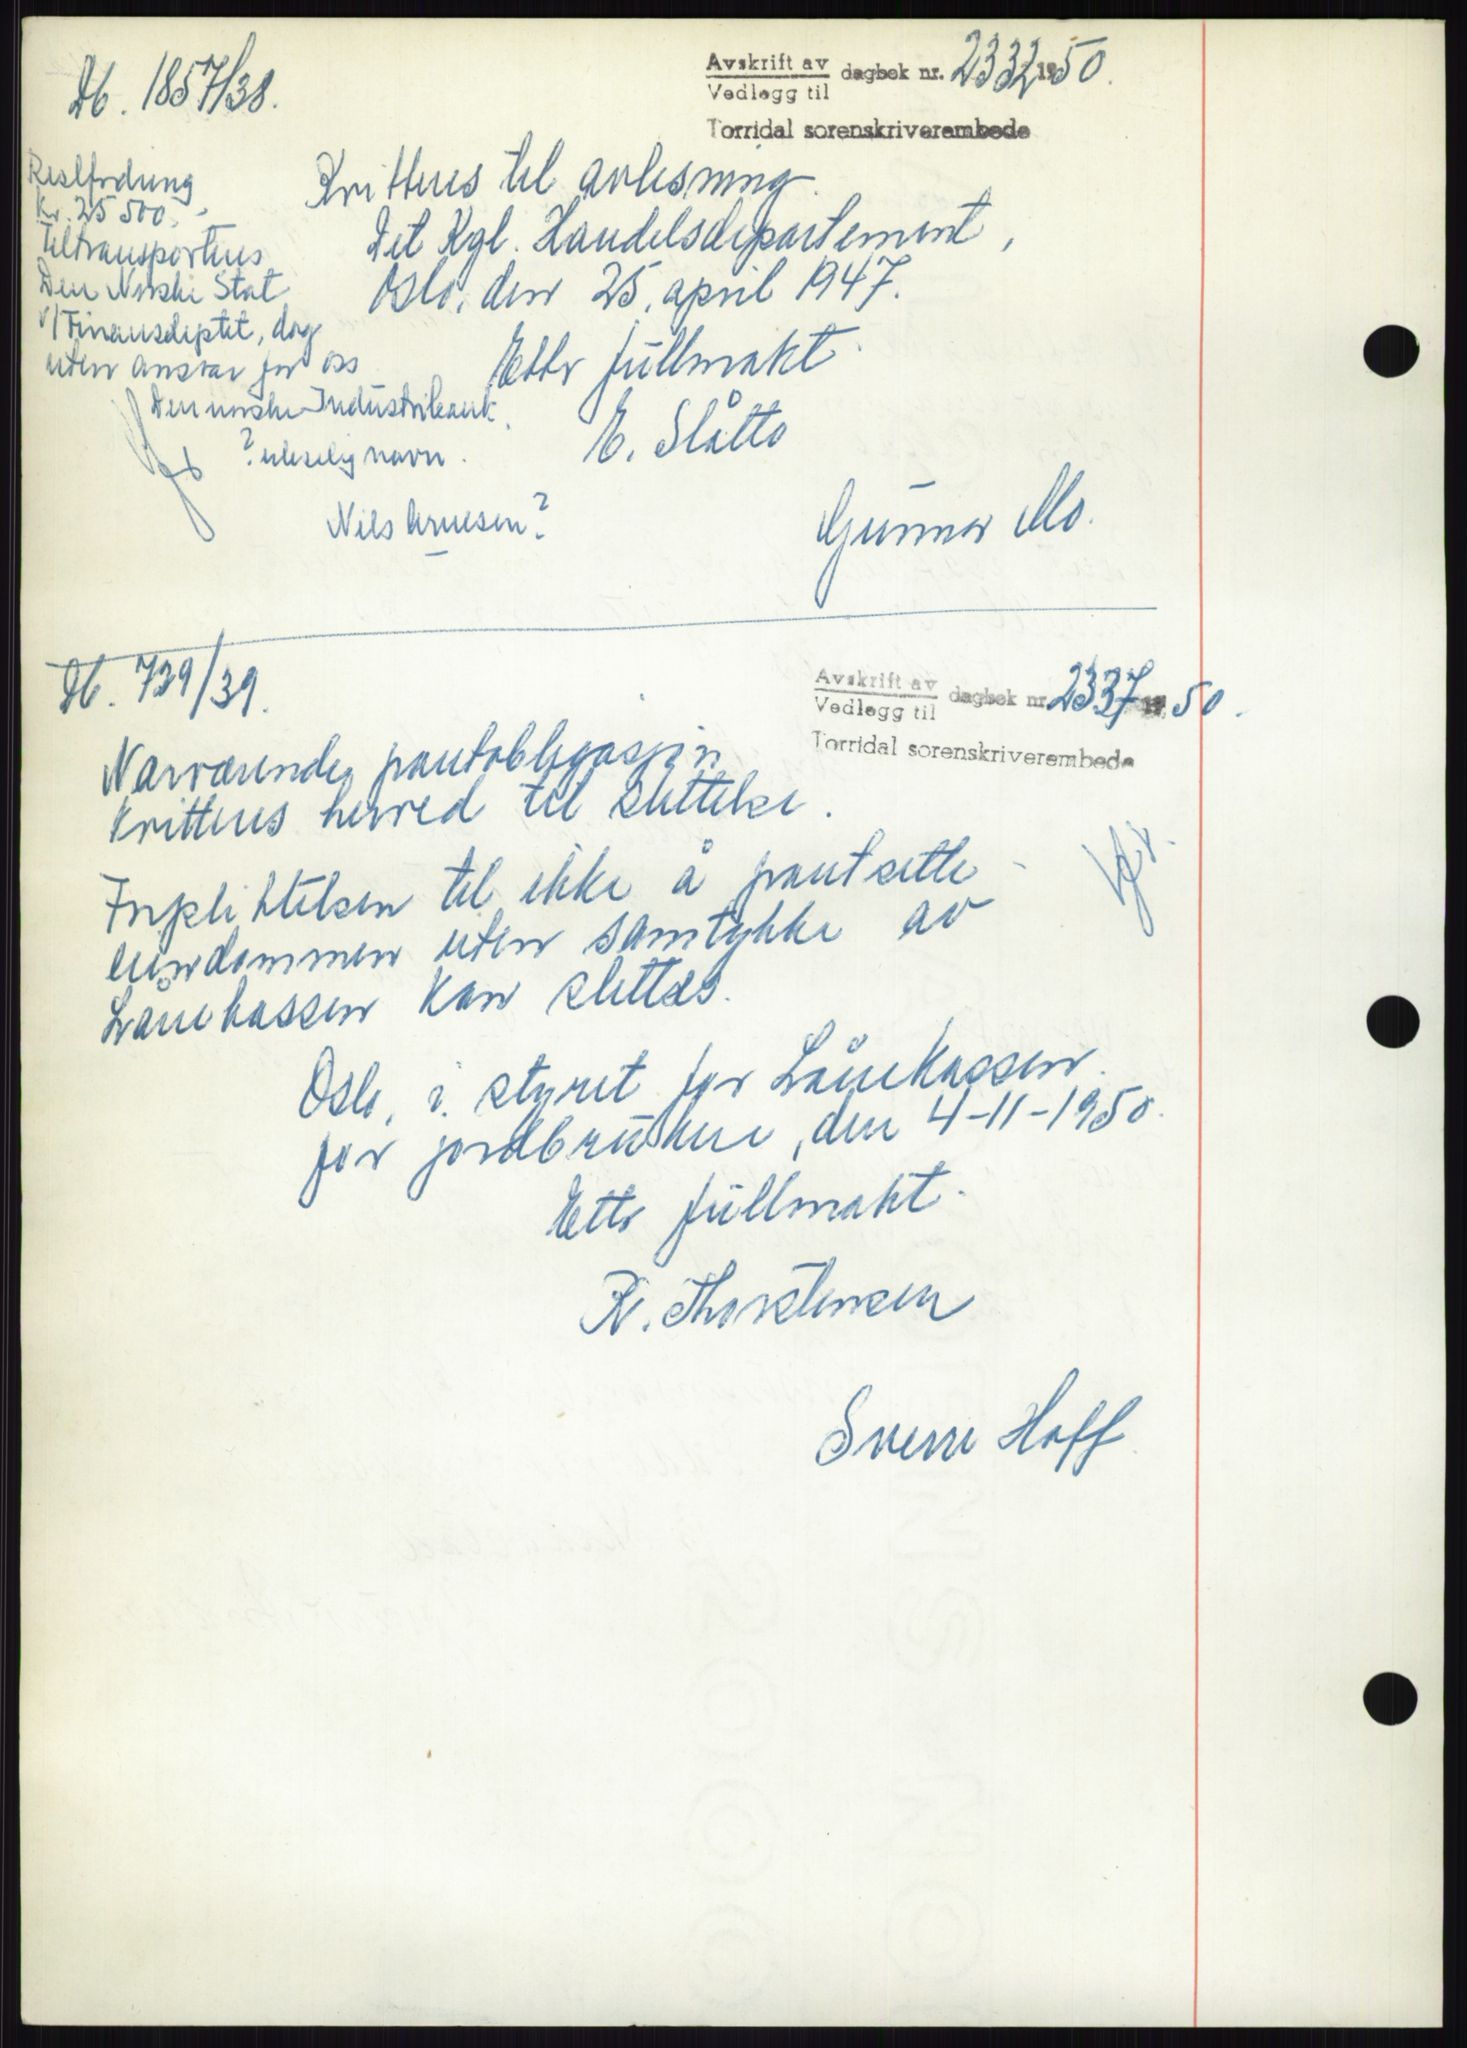 Db. 1857/38.
Avskrift av
Vedlegg til
dagbok nr. 2332 1950.
Torridal sorenskriverembede
Restfordring
Kr. 25 500.-
Tiltransporteres
Den Norske Stat
v/Finansdeptet, dog
uten ansvar for oss
Den norske Industribank.
? uleselig navn.
Nils Arnesen?
Kvitteres til avlesning.
Det Kgl. Handelsdepartement,
Oslo, den 25. april 1947.
Etter fullmakt.
E. Slåtto
Gunnar Mo.
Db. 729/39.
Avskrift av
Vedlegg til
dagbok nr. 2337 1950.
Torridal sorenskriverembede
Nærværende pantobligasjon
kvitteres herved til slettelse.
Forpliktelsen til ikke å pantsette
eiendommen uten samtykke av
Lånekassen kan slettes.
Oslo, i styret for Lånekassen
for jordbrukere, den 4-11-1950.
Etter fullmakt.
R. Thorstensen
Sverre Hoff